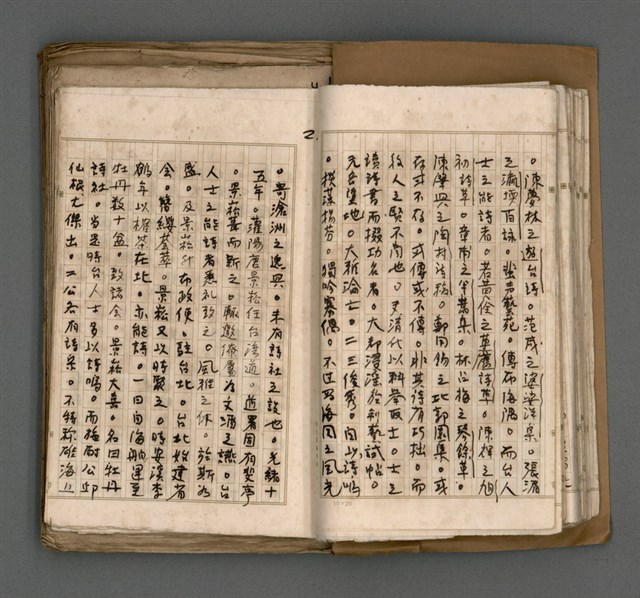 2.
。陳夢林之遊台詩。范咸之婆娑洋集。張湄
之瀛壖百詠。蜚聲藝苑。傳布海隅。而台人
士之能詩者。若黃佺之草廬詩草。陳輝之旭
初詩草。章甫之半崧集。林占梅之琴餘草。
陳肇興之陶村詩稿。鄭用錫之北郭園集。或
存或不存。或傳或不傳。非其詩有巧拙。而
後人之賢不肖也。夫清代以科舉取士。士之
讀詩書而掇功名者。大都浸淫於制藝試帖。
元音墜地。大雅淪亡。二三俊秀。自以詩鳴
。撲藻揚芬。獨吟寡偶。不過寫海國之風光
。寄滄洲之逸興。未有詩社之設也。光緒十
五年。灌陽唐景崧任台灣道。道署固有斐亭
。景崧葺而新之。輒邀僚屬為文酒之讌。台
人士之能詩者悉禮致之。風雅之休。於斯為
盛。及景崧升布政使。駐台北。台北始建省
會。簪纓薈萃。景崧又以時聚之。時安溪李
鶴年以榷茶在北。亦能詩。一日自海舶運至
牡丹數十盆。致諸會。景崧大喜。名曰牡丹
詩社。當是時台人士多以詩鳴。而施耐公邱
仙根尤傑出。二公各有詩集。不特稱雄海上